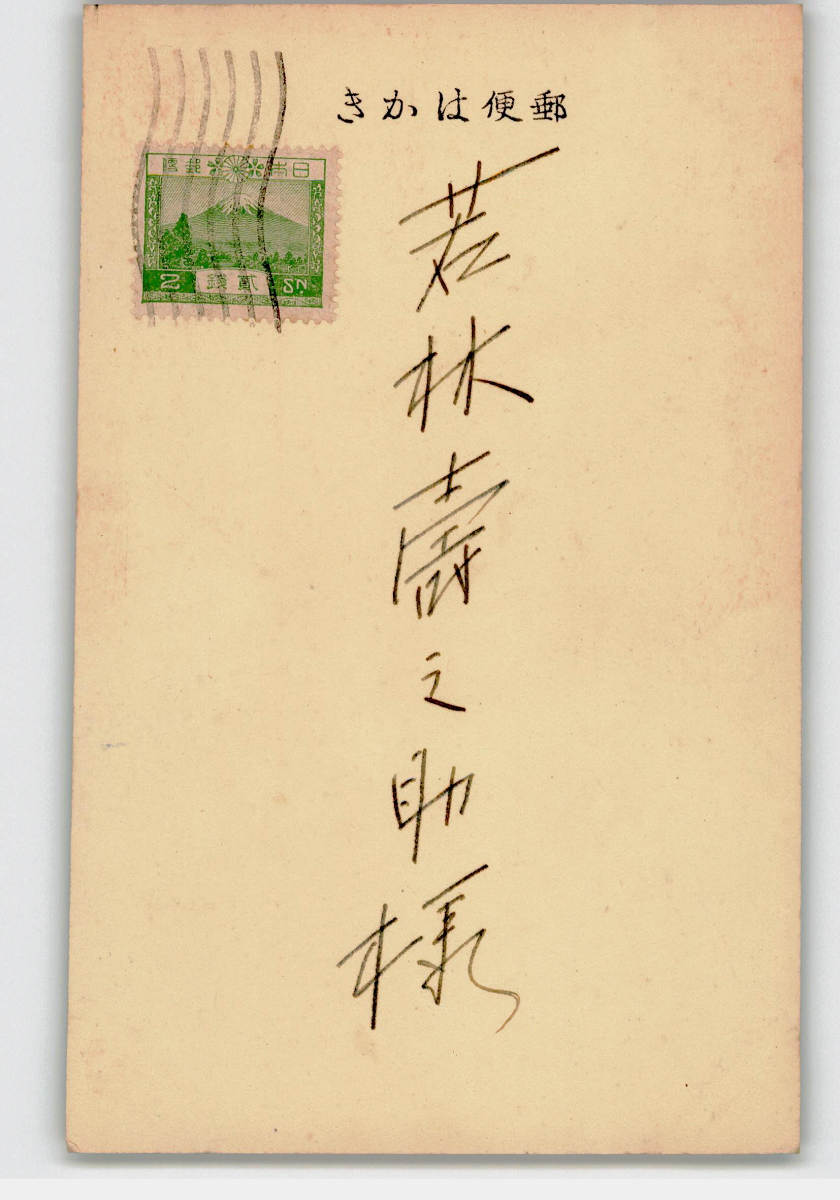 郵便はかき
日本郵便
2 貳銭 SN.
若林壽之助様